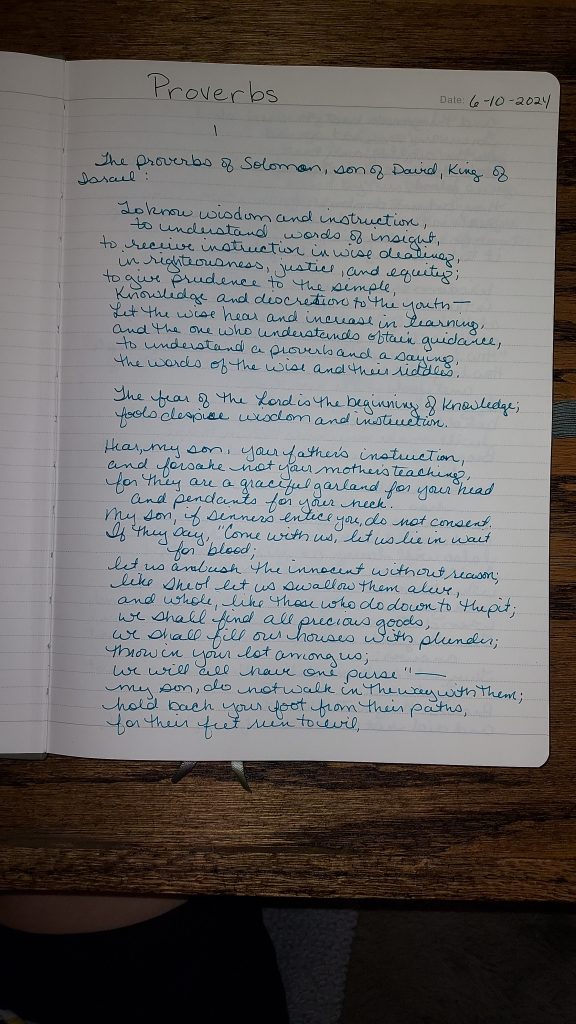 Proverbs
Date: 6-10-2024
1
The proverbs of Solomon, son of David, King of
Israel:
To know wisdom and instruction,
to understand words of insight,
to receive instruction in wise dealing,
in righteousness, justice, and equity;
to give prudence to the simple,
Knowledge and discretion to the youth—
Let the wise hear and increase in learning,
and the one who understands obtain guidance,
to understand a proverb and a saying,
the words of the wise and their riddles.
The fear of the Lord is the beginning of Knowledge;
fools despise wisdom and instruction.
Hear, my son, your father's instruction,
and forsake not your mother's teaching,
for they are a graceful garland for your head
and pendants for your neck.
My son, if sinners entice you, do not consent.
If they say, "Come with us, let us lie in wait
for blood;
let us ambush the innocent without reason;
like Sheol let us swallow them alive,
and whole, like those who do down to the pit;
we shall find all precious goods,
we shall fill our houses with plunder;
throw in your lot among us;
we will all have one purse"—
my son, do not walk in the way with them;
hold back your foot from their paths,
for their feet run to evil,